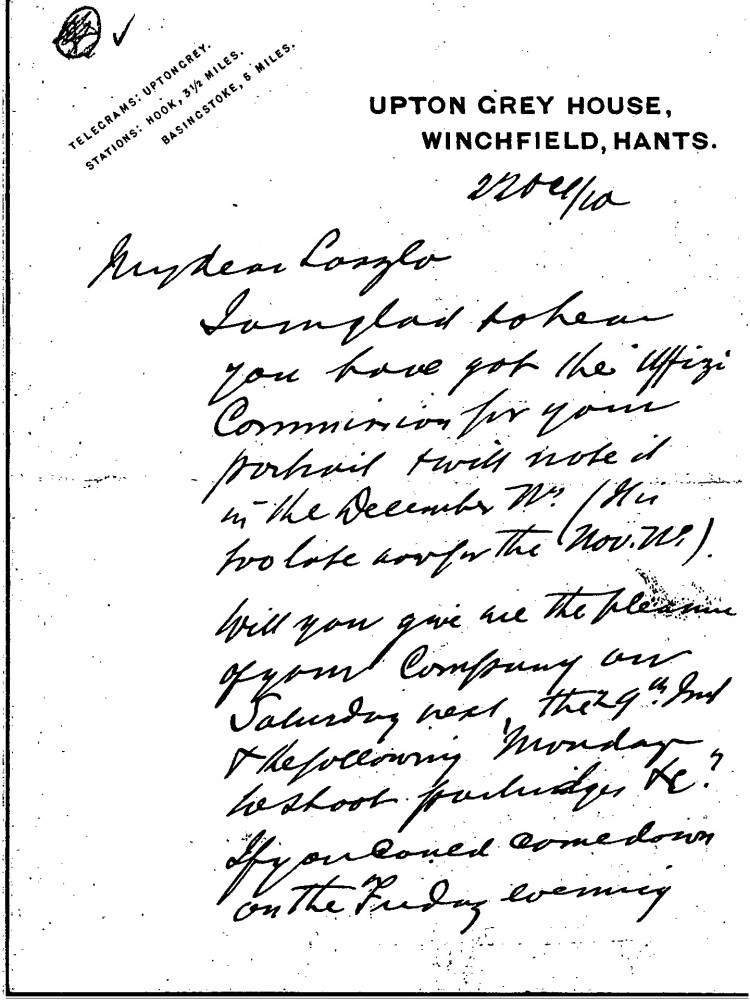 TELEGRAMS: UPTONGREY.
STATIONS: HOOK, 3½ MILES.
BASINGSTOKE, 6 MILES.
UPTON GREY HOUSE,
WINCHFIELD, HANTS.
22 Oct/10
My dear Laszlo
I am glad to hear
you have got the Uffizi
Commission for your
portrait & will note it
in the December No. (It is
too late now for the Nov. No.).
Will you give me the pleasure
of your Company on
Saturday next, the 29th. Inst
& the following Monday
to shoot partridges &c.?
If you could come down
on the Friday evening